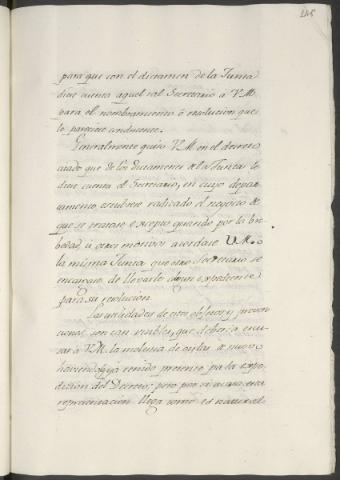 para que con el dictamen de la Junta
diese cuenta aquel tal Secretario a V.M.
para el nombramiento ó resolucion que
le pareciese conducente.
Generalmente quiso V.M. en el decreto
citado que de los Dictamenes de la Junta se
diese cuenta el Secretario, en cuyo depar-
tamento estubiese radicado el negocio de
que se tratase excepto quando por la bre-
bedad, ú otros motivos acordase V.M. ó
la misma Junta que otro Secretario se
encargase de llevarlo algun expediente
para su resolucion.
Las utilidades de este objeto, y provi
ciones son tan visibles, que deberia escu-
sar a V.M. la molestia de oirlas de nuevo
haviendolas ya tenido presente pa la expe-
dicion del Decreto; pero por si acaso esta
representacion llega como es natural